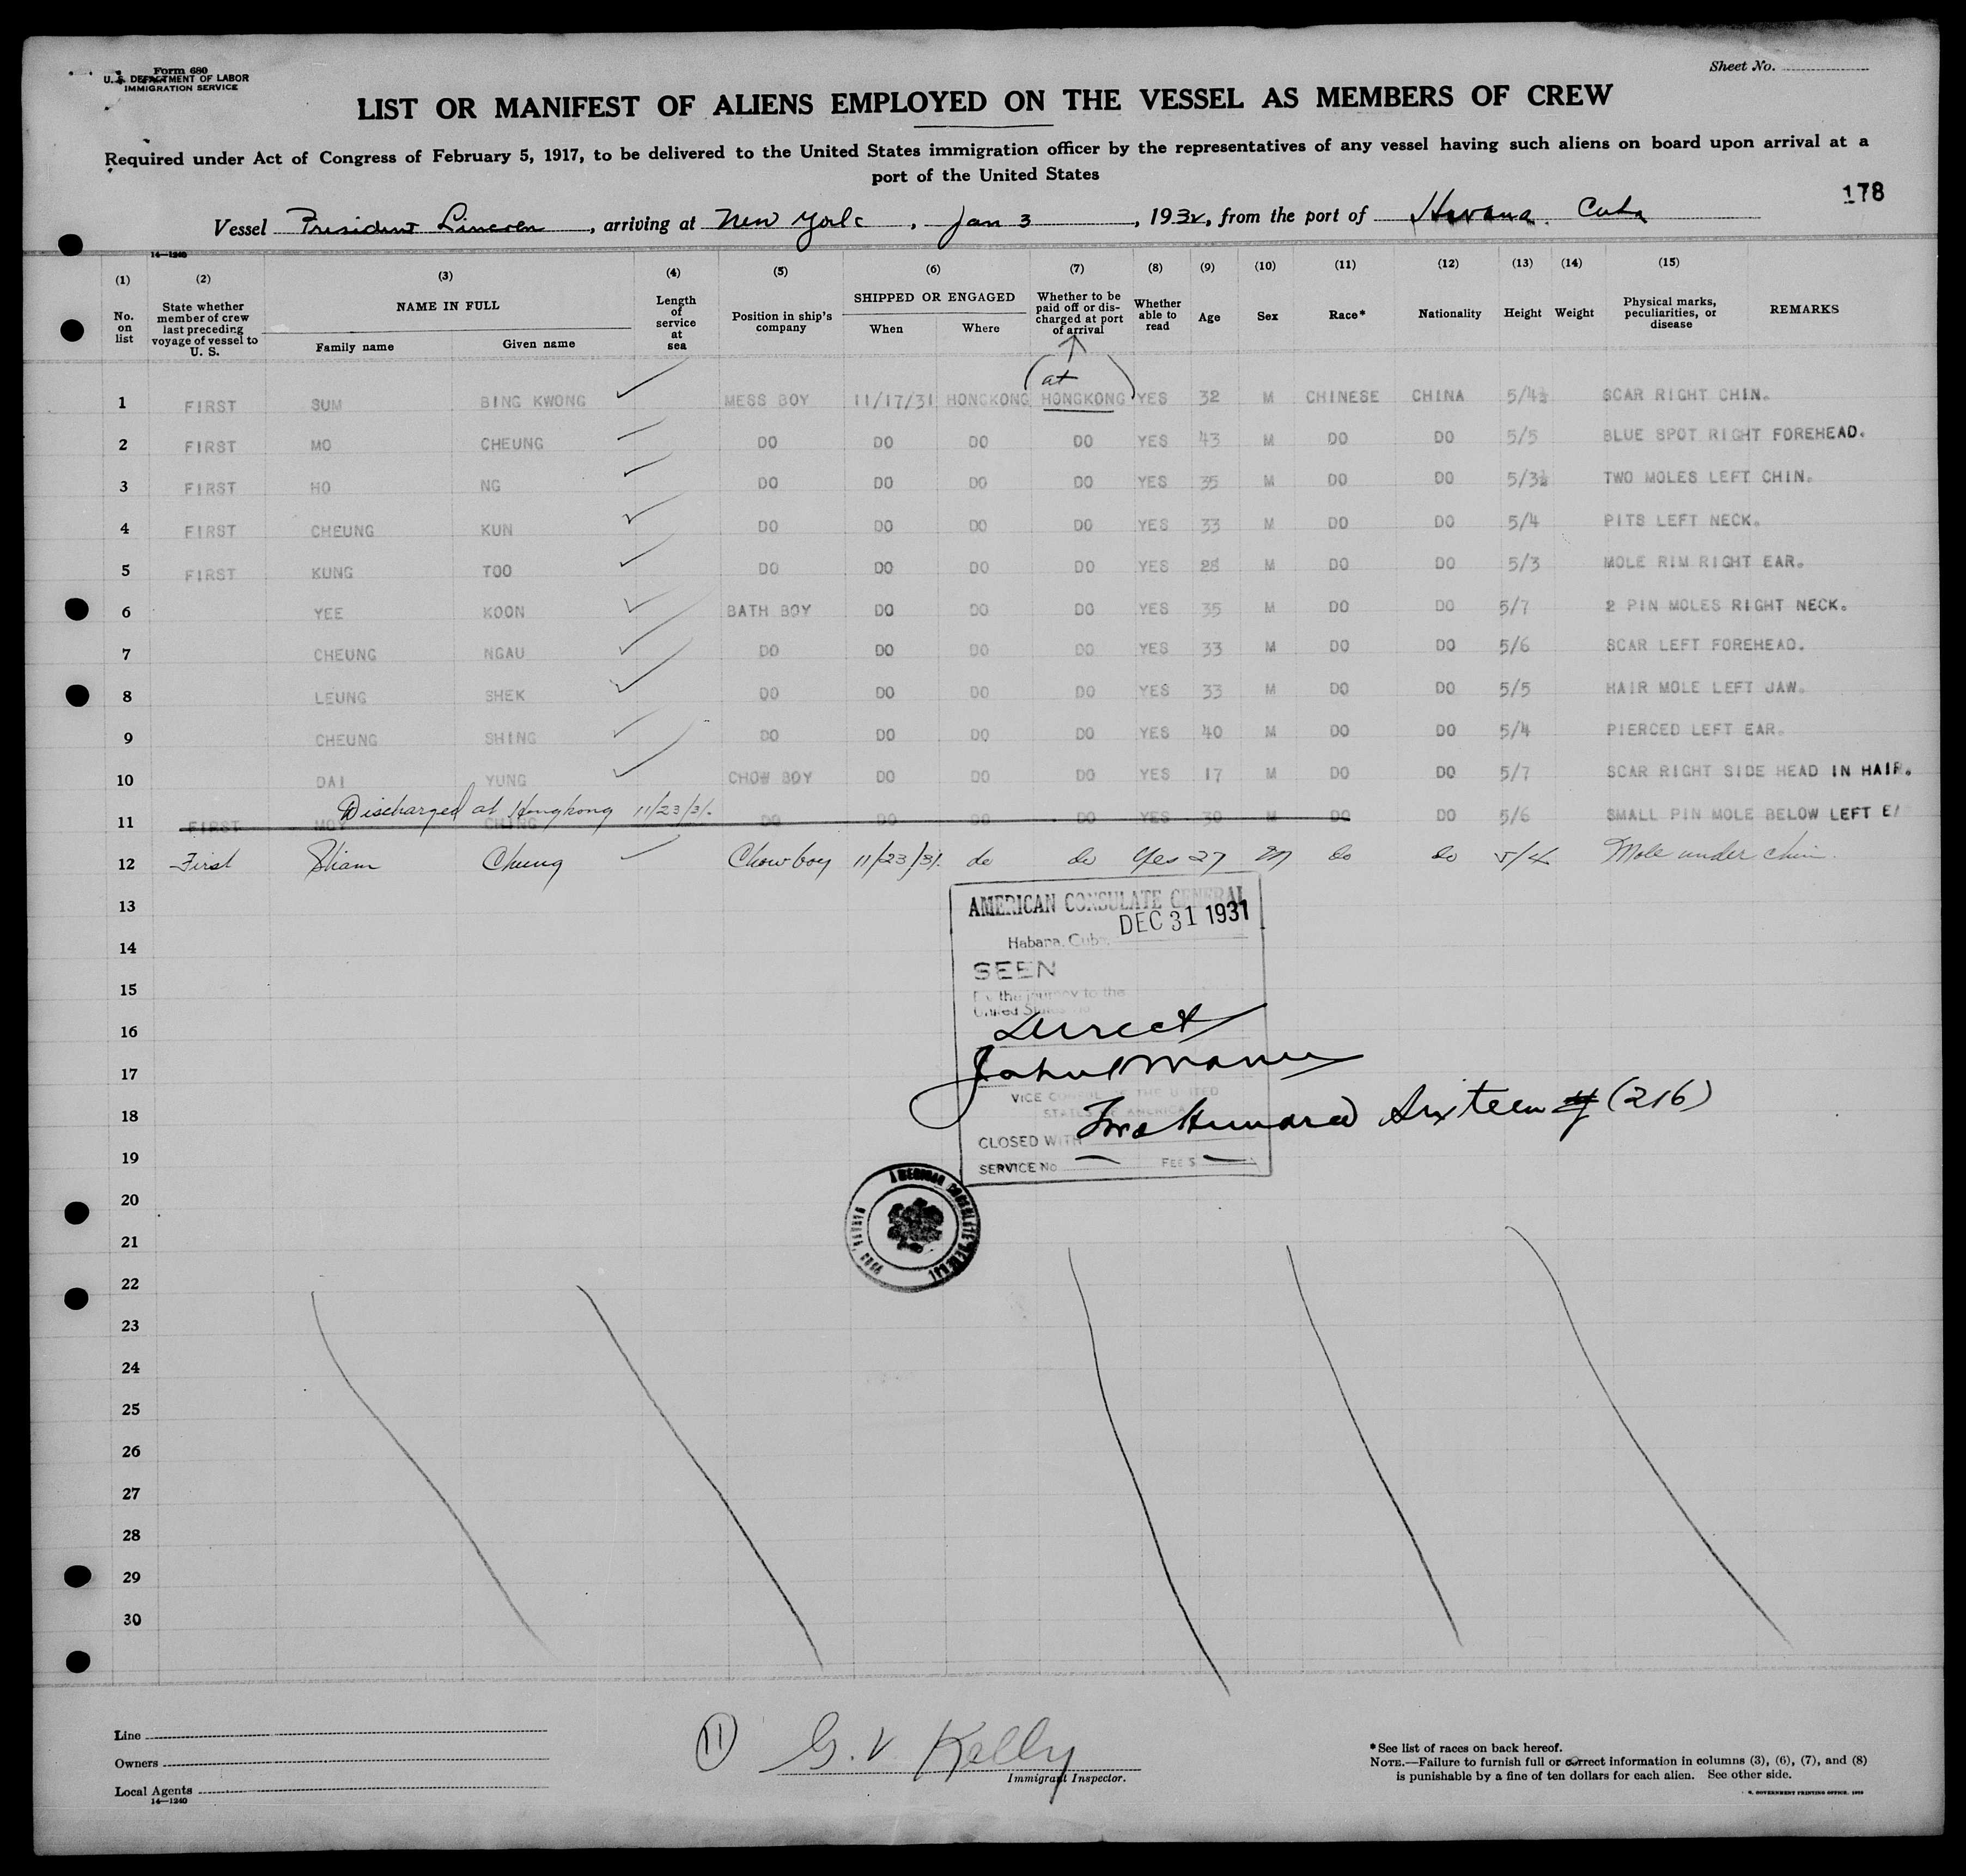 Form 680
U. S. DEPARTMENT OF LABOR
IMMIGRATION SERVICE
Sheet No.
LIST OR MANIFEST OF ALIENS EMPLOYED ON THE VESSEL AS MEMBERS OF CREW
Required under Act of Congress of February 5, 1917, to be delivered to the United States immigration officer by the representatives of any vessel having such aliens on board upon arrival at a
port of the United States
178
Vessel President Lincoln, arriving at New York, Jan 3, 1932, from the port of Havana. Cuba
14—1240
(1) (2) (3) (4) (5) (6) (7) (8) (9) (10) (11) (12) (13) (14) (15)
No. on list
State whether member of crew last preceding voyage of vessel to U. S.
NAME IN FULL
Family name Given name
Length of service at sea
Position in ship's company
SHIPPED OR ENGAGED
When Where
Whether to be paid off or discharged at port of arrival
Whether able to read
Age
Sex
Race*
Nationality
Height
Weight
Physical marks, peculiarities, or disease
REMARKS
(at)
1 FIRST SUM BING KWONG MESS BOY 11/17/31 HONGKONG HONGKONG YES 32 M CHINESE CHINA 5/4½ SCAR RIGHT CHIN.
2 FIRST MO CHEUNG DO DO DO DO YES 43 M DO DO 5/5 BLUE SPOT RIGHT FOREHEAD.
3 FIRST HO NG DO DO DO DO YES 35 M DO DO 5/3½ TWO MOLES LEFT CHIN.
4 FIRST CHEUNG KUN DO DO DO DO YES 33 M DO DO 5/4 PITS LEFT NECK.
5 FIRST KUNG TOO DO DO DO DO YES 28 M DO DO 5/3 MOLE RIM RIGHT EAR.
6 YEE KOON BATH BOY DO DO DO YES 35 M DO DO 5/7 2 PIN MOLES RIGHT NECK.
7 CHEUNG NGAU DO DO DO DO YES 33 M DO DO 5/6 SCAR LEFT FOREHEAD.
8 LEUNG SHEK DO DO DO DO YES 33 M DO DO 5/5 HAIR MOLE LEFT JAW.
9 CHEUNG SHING DO DO DO DO YES 40 M DO DO 5/4 PIERCED LEFT EAR.
10 DAI YUNG CHOW BOY DO DO DO YES 17 M DO DO 5/7 SCAR RIGHT SIDE HEAD IN HAIR.
Discharged at Hongkong 11/23/31.
11 FIRST MOY CHING DO DO DO DO YES 30 M DO DO 5/6 SMALL PIN MOLE BELOW LEFT
12 First Sham Chung Chow boy 11/23/31. do do Yes 27 M do do 5/4 Mole under chin.
13
14
15
16
17
18
19
20
21
22
23
24
25
26
27
28
29
30
AMERICAN CONSULATE GENERAL
DEC 31 1931
Habana, Cuba,
SEEN
For the journey to the
United States
Direct
VICE CONSUL OF THE UNITED
STATES OF AMERICA
CLOSED WITH Two Hundred Sixteen (216)
SERVICE No. — FEE $ —
AMERICAN CONSULATE GENERAL
Line
Owners
Local Agents
14—1240
11 G. V Kelly
Immigrant Inspector.
*See list of races on back hereof.
NOTE.—Failure to furnish full or correct information in columns (3), (6), (7), and (8)
is punishable by a fine of ten dollars for each alien. See other side.